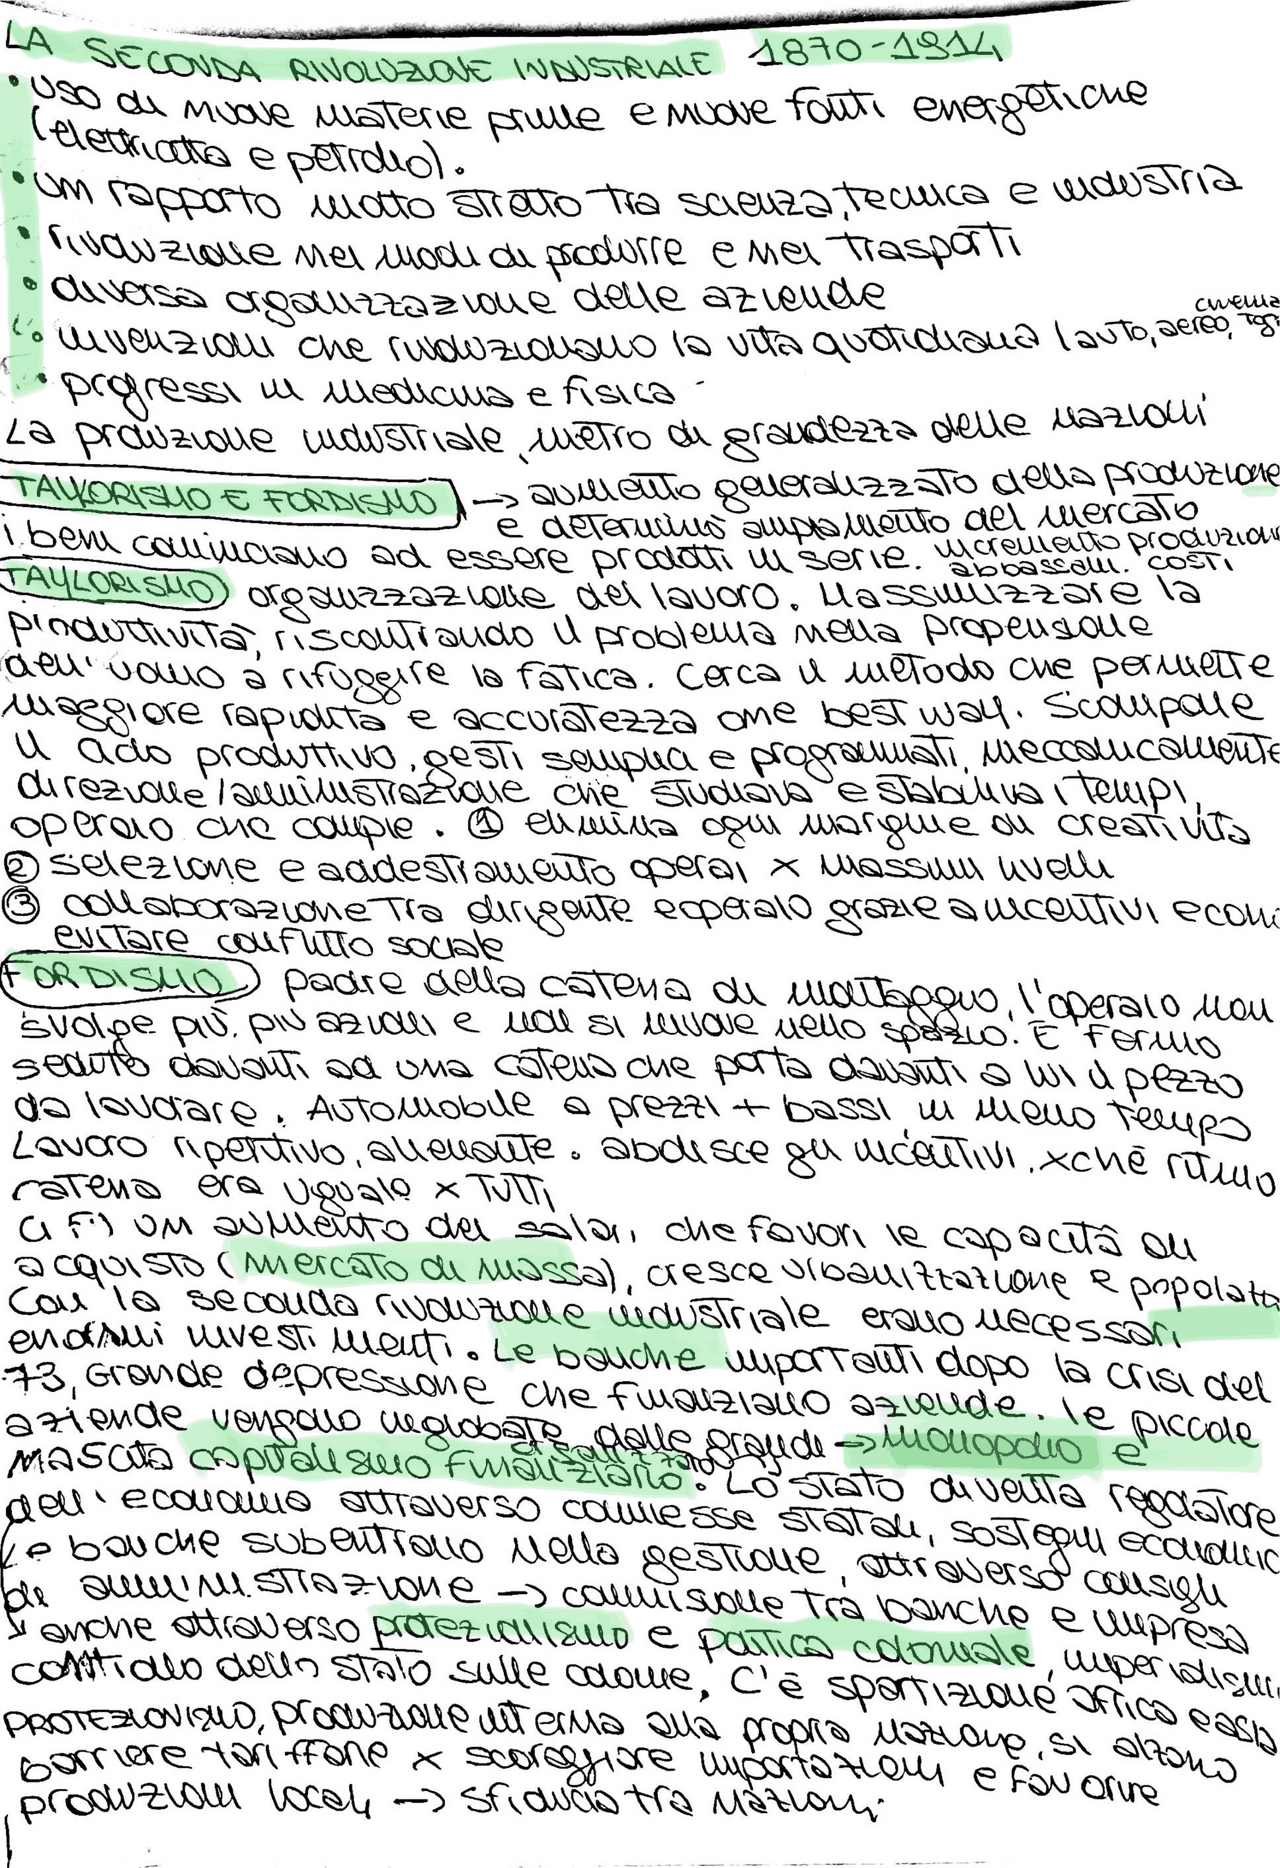 LA SECONDA RIVOLUZIONE INDUSTRIALE 1870-1914
• uso di nuove materie prime e nuove fonti energetiche
(elettricità e petrolio).
• un rapporto molto stretto tra scienza, tecnica e industria
• rivoluzione nei modi di produrre e nei trasporti
• diversa organizzazione delle aziende
• invenzioni che rivoluzionano la vita quotidiana (auto, aereo, cinema
• progressi in medicina e fisica
La produzione industriale, metro di grandezza delle nazioni
TAYLORISMO E FORDISMO → aumento generalizzato della produzione
e determinò ampliamento del mercato
i beni cominciano ad essere prodotti in serie. incremento produzion
abbassam. costi
TAYLORISMO organizzazione del lavoro. Massimizzare la
produttività, riscontrando il problema nella propensione
dell'uomo a rifuggire la fatica. Cerca il metodo che permette
maggiore rapidità e accuratezza one best way. Scompone
il ciclo produttivo, gesti semplici e programmati, meccanicamente
direzione/amministrazione che studiava e stabiliva i tempi,
operaio che compie. ① elimina ogni margine di creatività
② selezione e addestramento operai x massimi livelli
③ collaborazione tra dirigente e operaio grazie a incentivi econ
evitare conflitto sociale
FORDISMO padre della catena di montaggio, l'operaio non
svolge più più azioni e non si muove nello spazio. È fermo
seduto davanti ad una catena che porta davanti a lui il pezzo
da lavorare. Automobile a prezzi + bassi, in meno tempo
Lavoro ripetitivo, alienante. abolisce gli incentivi, xché ritmo
catena era uguale x tutti
Ci fu un aumento dei salari, che favorì le capacità di
acquisto (mercato di massa), cresce urbanizzazione e popolaz
Con la seconda rivoluzione industriale erano necessari
enormi investimenti. Le banche importanti dopo la crisi del
73, Grande depressione che finanziano aziende. le piccole
aziende vengono inglobate dalle grandi → monopolio e
nascita capitalismo finanziario. Lo stato diventa regolatore
dell'economia attraverso commesse statali, sostegni economic
Le banche subentrano nella gestione, attraverso consigli
di amministrazione → commistione tra banche e impresa
anche attraverso protezionismo e politica coloniale, imperialism
controllo dello stato sulle colonie. C'è spartizione Africa e asia
PROTEZIONISMO, produzione interna alla propria nazione, si alzano
barriere tariffarie x scoraggiare importazioni e favorire
produzioni locali → sfiducia tra nazioni